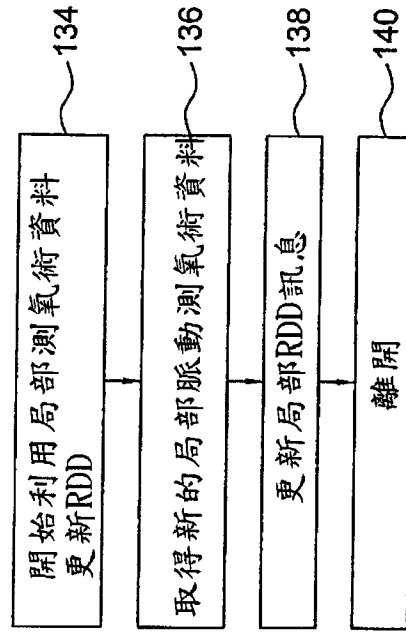 開始利用局部測氧術資料
更新RDD
134
取得新的局部脈動測氧術資料
136
更新局部RDD訊息
138
離開
140